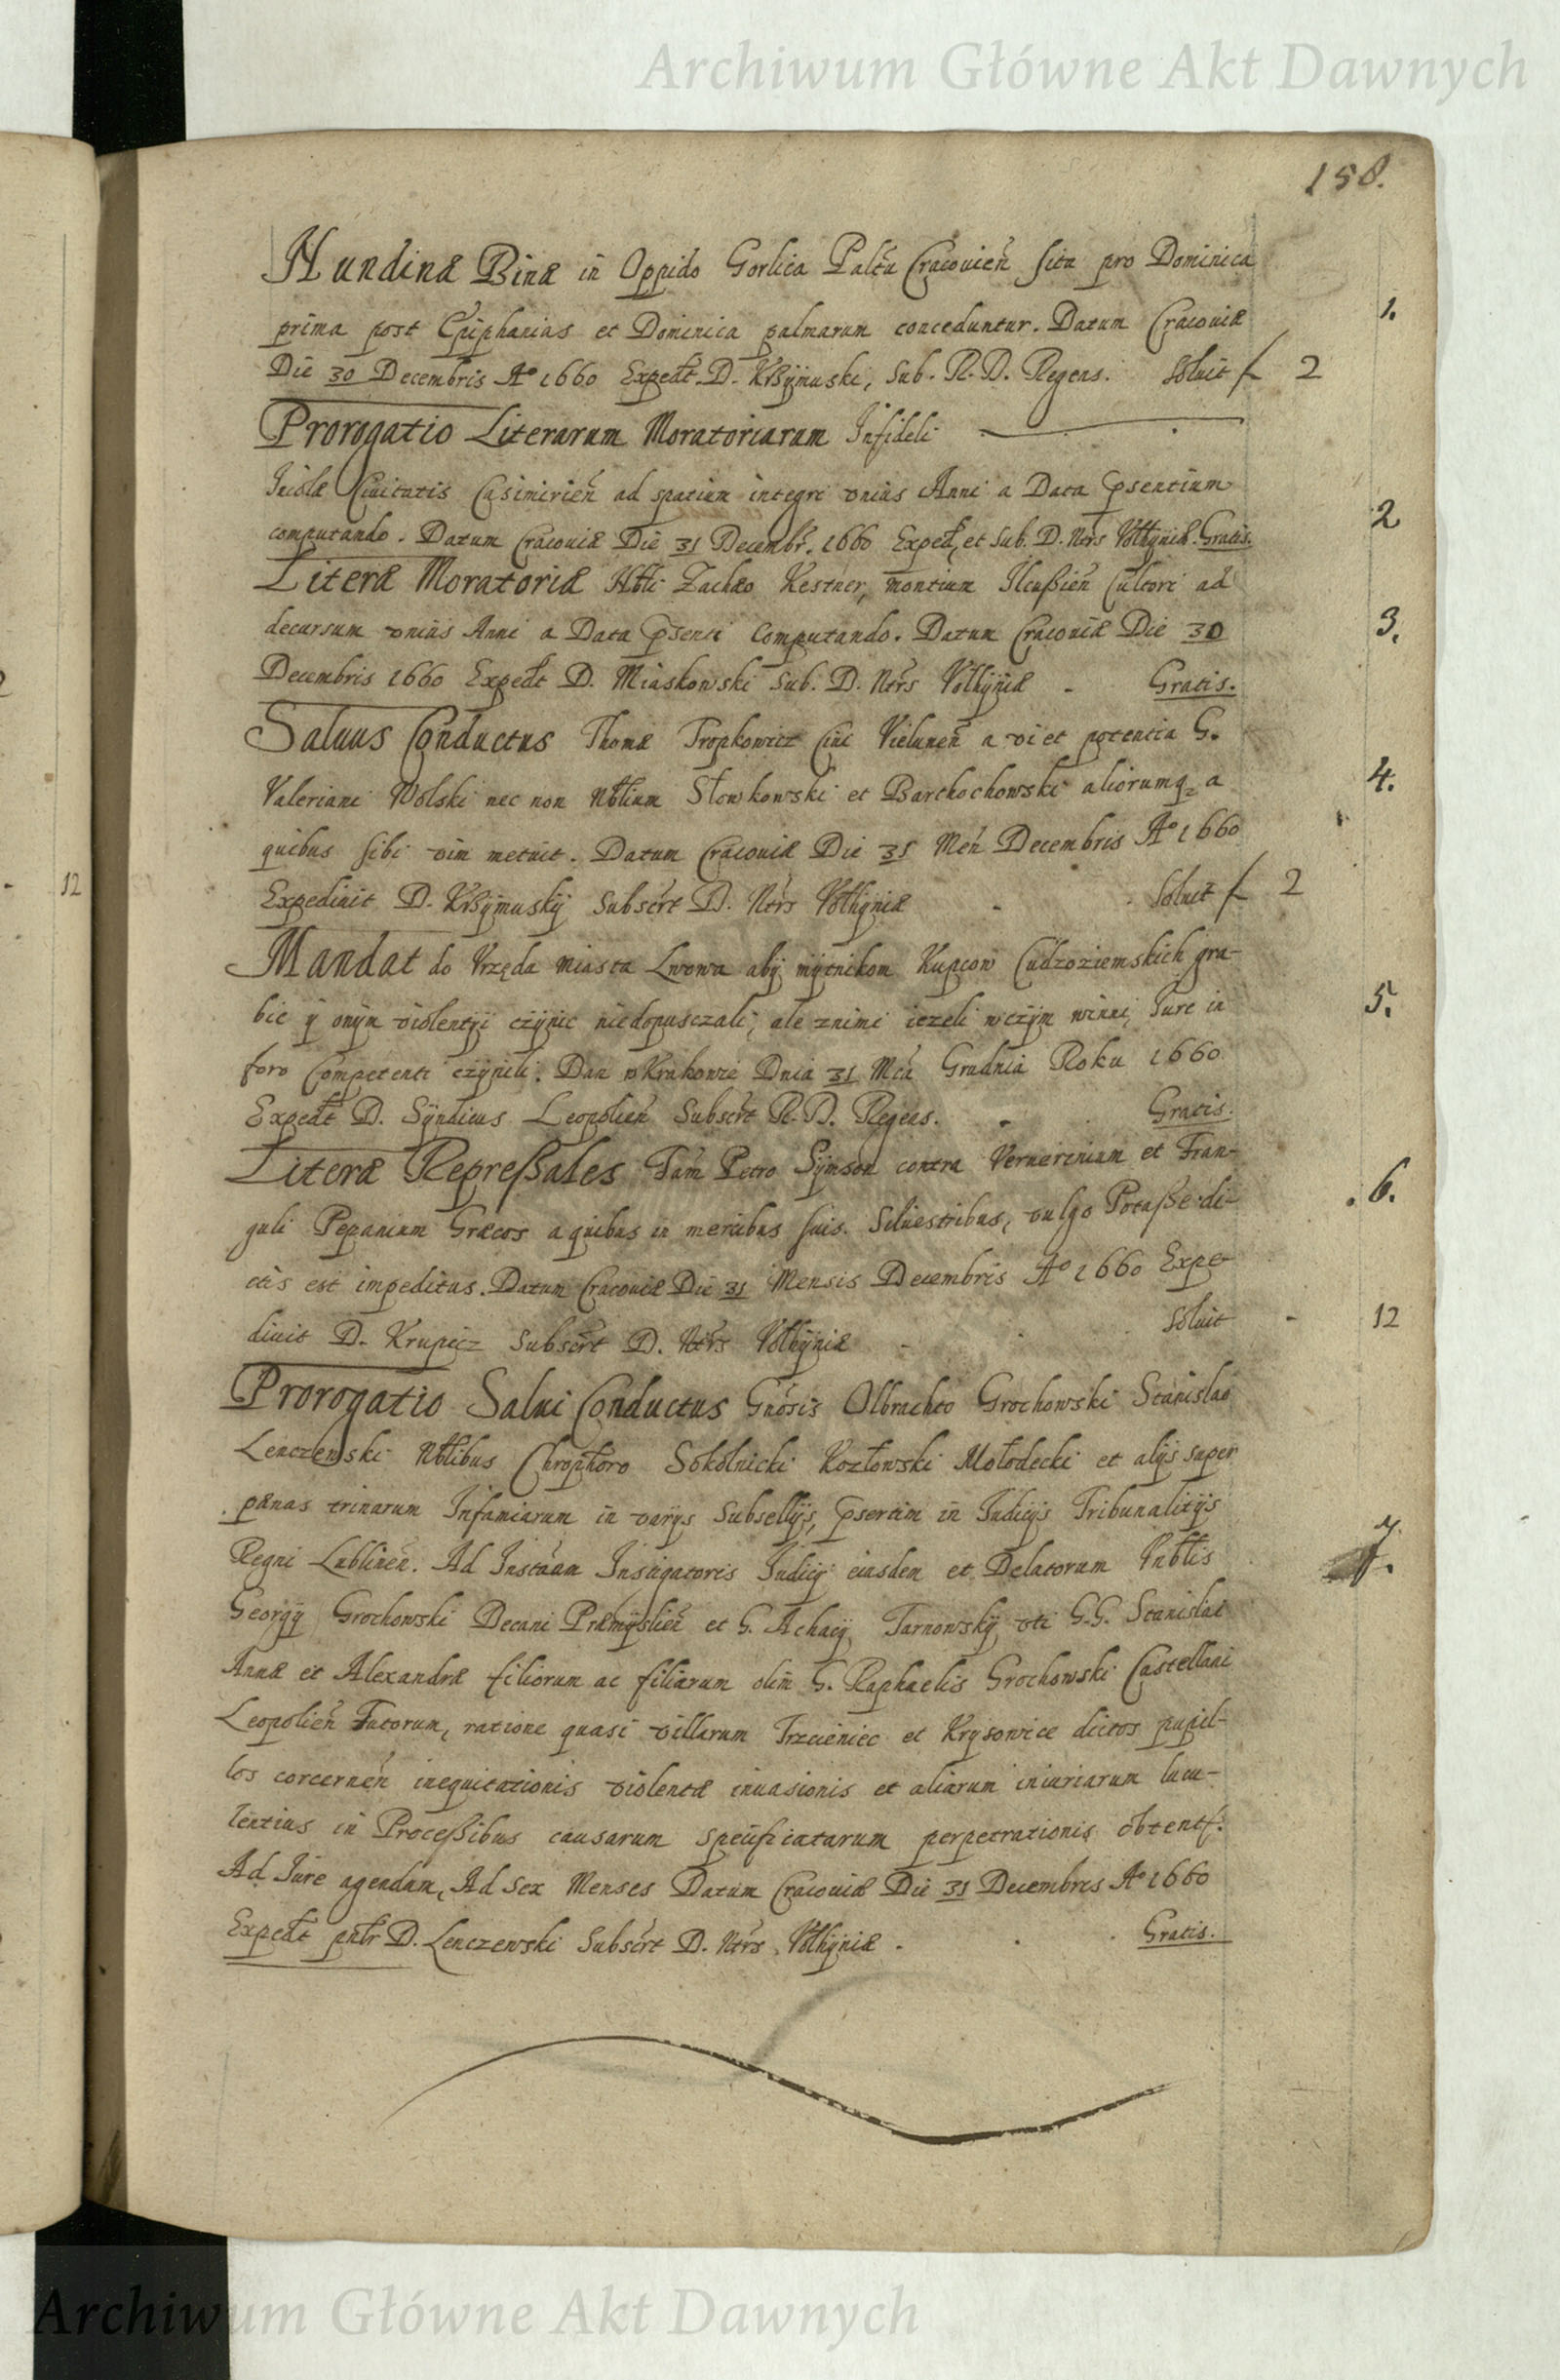 Archiwum Główne Akt Dawnych
158.
Nundinæ Binæ in Oppido Gorlica Paltu Cracouien̄ sita pro Dominica
prima post Epiphanias et Dominica palmarum conceduntur. Datum Cracouiæ 1.
Die 30 Decembris Aº 1660 Expedt. D. Krzÿmuski, Sub. R. D. Regens. Soluit f 2
Prorogatio Literarum Moratoriarum Infideli
Incolæ Ciuitatis Casimirien̄ ad spatium integri vnius Anni a Data p̄sentium
computando. Datum Cracouiæ Die 31 Decembr. 1660 Exped, et Sub. D. Ntrs Vołhÿniæ. Gratis. 2
Literæ Moratoriæ Nbli Zachæo Kestner, montium Ilcußien̄ Cultori ad
decursum vnius Anni a Data p̄senti Computando. Datum Cracouiæ Die 30 3.
Decembris 1660 Expedt D. Miaskowski Sub. D. Ntrs Vołhÿniæ - Gratis.
Saluus Conductus Thomæ Tropkowicz Ciui Vielunen̄ a vi et potentia G.
Valeriani Wolski nec non Nblium Słowkowski et Barthochowski aliorumq, a 4.
quibus sibi vim metuit. Datum Cracouiæ Die 31 Men̄ Decembris Aº 1660
Expediuit D. Krzÿmuskÿ Subscrt D. Ntrs Vołhÿniæ - Soluit f 2
Mandat do Vrzęda miasta Lwowa abÿ mÿtnikom Kupcow Cudzoziemskich gra-
bic ÿ onÿm violentÿi czÿnic niedopusczali, ale znimi iezeli wczÿm winni, Iure in 5.
foro Competenti czÿnili. Dan w Krakowie Dnia 31 Mca Grudnia Roku 1660
Expedt D. Sÿndicus Leopolien̄ Subscrt R. D. Regens. - Gratis.
Literæ Repreßales Fam Petro Sÿmson contra Vernerinium et Fran-
guli Pepanium Græcos a quibus in mercibus suis Siluestribus, vulgo Potaße di- 6.
ctis est impeditus. Datum Cracouiæ Die 31 Mensis Decembris Aº 1660 Expe-
diuit D. Krupicz Subscrt D. Ntrs Vołhÿniæ - Soluit - 12
Prorogatio Salui Conductus Gnosis Olbrachto Grochowski Stanislao
Lenczewski Nblibus Chrophoro Sokolnicki Kozłowski Mołodecki et alÿs super
pænas trinarum Infamiarum in varÿs Subsellÿs, p̄sertim in Iudicÿs Tribunalitÿs
Regni Lublinen̄. Ad Instaum Instigatoris Iudicÿ eiusdem et Delatorum Vnblis 7.
Georgÿ Grochowski Decani Præmÿslien̄ et G. Achacÿ Tarnowskÿ vti G.G. Stanislai
Annæ et Alexandræ filiorum ac filiarum olim G. Raphaelis Grochowski Castellani
Leopolien̄ Tutorum, ratione quasi villarum Trzcieniec et Krysowice dictos pupil-
los concernen̄ inequitationis violentæ inuasionis et aliarum iniuriarum lucu-
lentius in Proceßibus causarum specificatarum perpetrationis obtent.
Ad Iure agendum, Ad Sex Menses Datum Cracouiæ Die 31 Decembris Aº 1660
Expedt D. Lenczewski Subscrt D. Ntrs Vołhÿniæ . Gratis.
12
Archiwum Główne Akt Dawnych